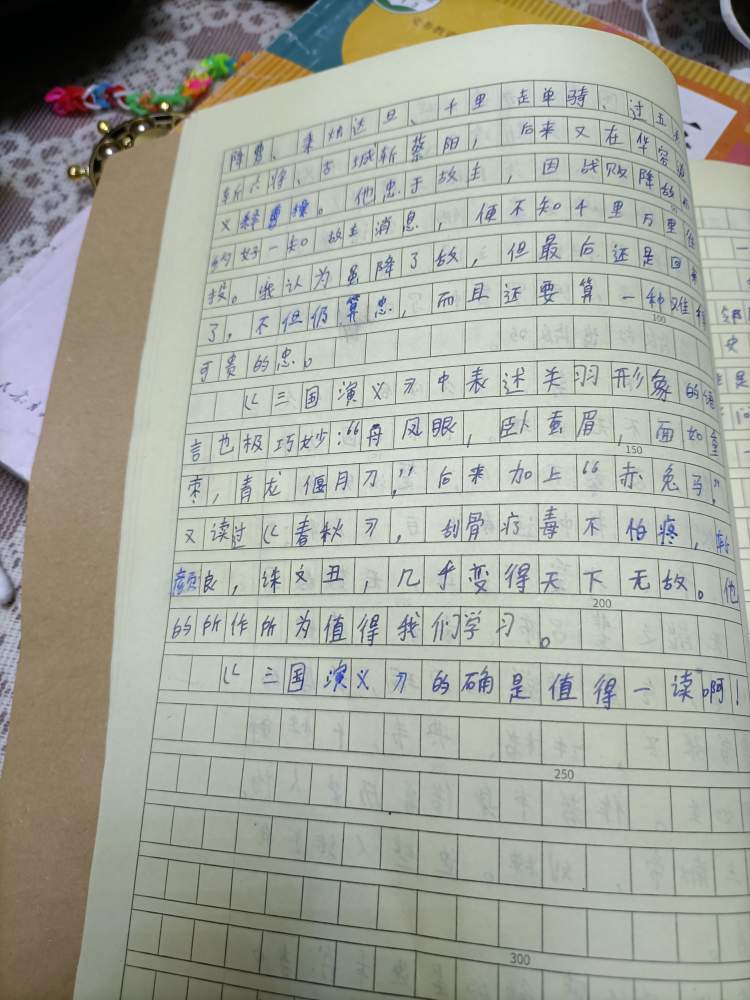 义务教
降曹、秉烛达旦、千里走单骑、过五关
斩六将、古城斩蔡阳,后来又在华容道
义释曹操。他忠于故主,因战败降敌
约好一知故主消息,便不知千里万里
投。我认为虽降了敌,但最后还是回
了,不但仍算忠,而且还要算一种难能
可贵的忠。
100
《三国演义》中表述关羽形象的语
言也极巧妙:“丹凤眼,卧蚕眉,面如重
150
枣,青龙偃月刀,”后来加上“赤兔马,”
又读过《春秋》,刮骨疗毒不怕疼,斩
颜良,诛文丑,几乎变得天下无敌。他
200
的所作所为值得我们学习。
《三国演义》的确是值得一读啊!
250
300